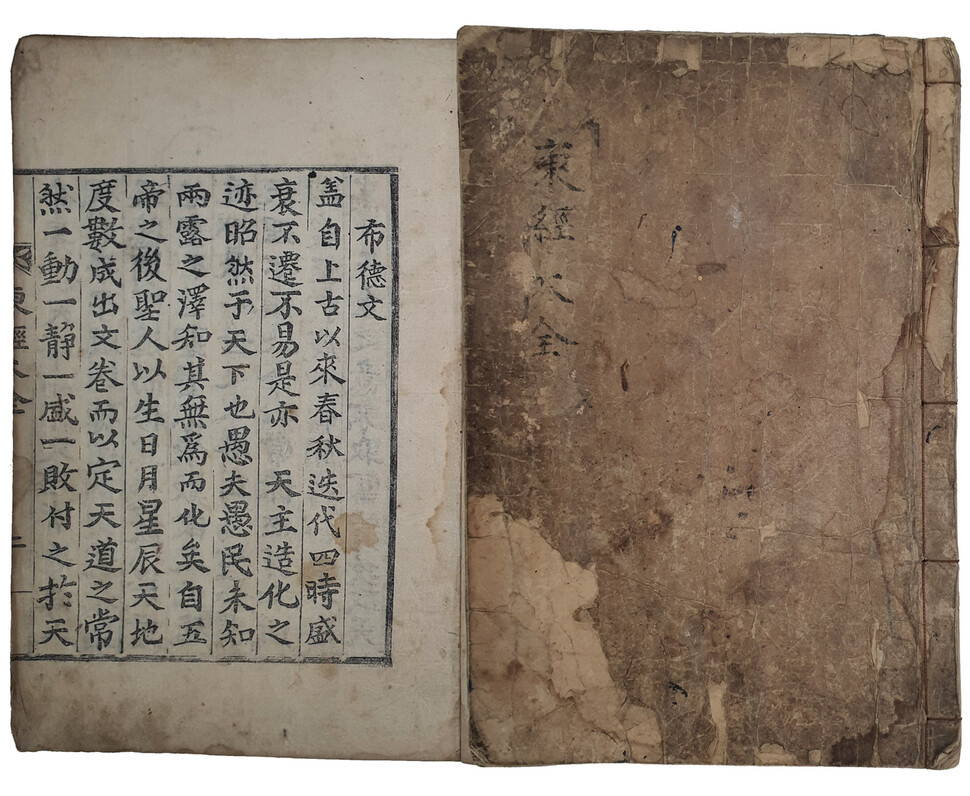 東經大全
布德文
盖自上古以來春秋迭代四時盛
衰不遷不易是亦　天主造化之
迹昭然于天下也愚夫愚民未知
雨露之澤知其無爲而化矣自五
帝之後聖人以生日月星辰天地
度數成出文卷而以定天道之常
然一動一静一盛一敗付之扵天
東經大全